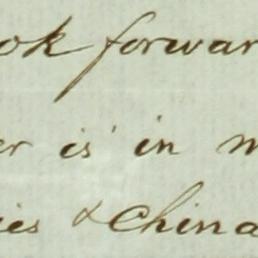 ook forwar
er is in m
ies & China